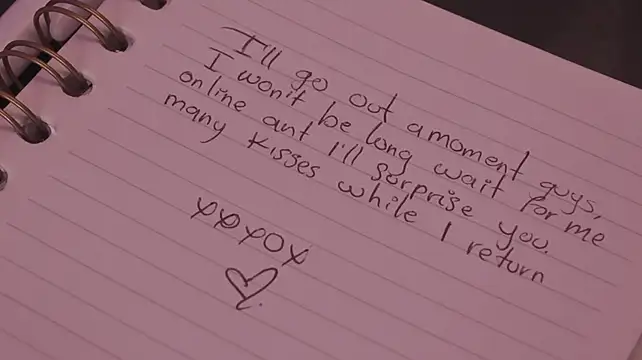 I'll go out a moment guys,
I won't be long wait for me
online ant I'll sorprise you.
many kisses while I return
xoxox
♡